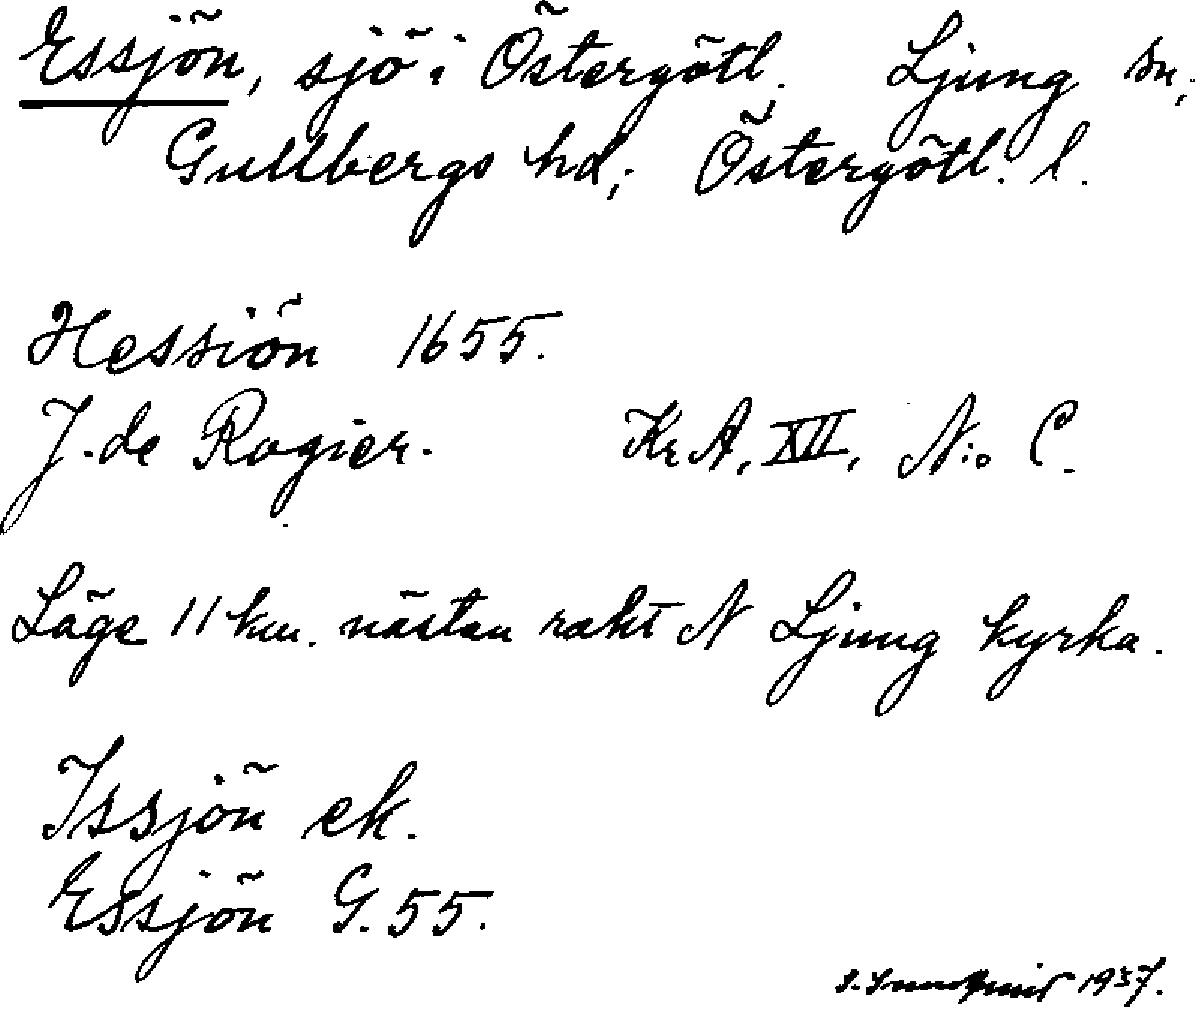 Essjön, sjö i Östergötl. Ljung sn,
Gullbergs hd, Östergötl. l.
Hessiön 1655.
J. de Rogier. Kr A, XII, N:o C.
Läge 11 km. nästan rakt N Ljung kyrka.
Issjön ek.
Essjön G. 55.
1957.